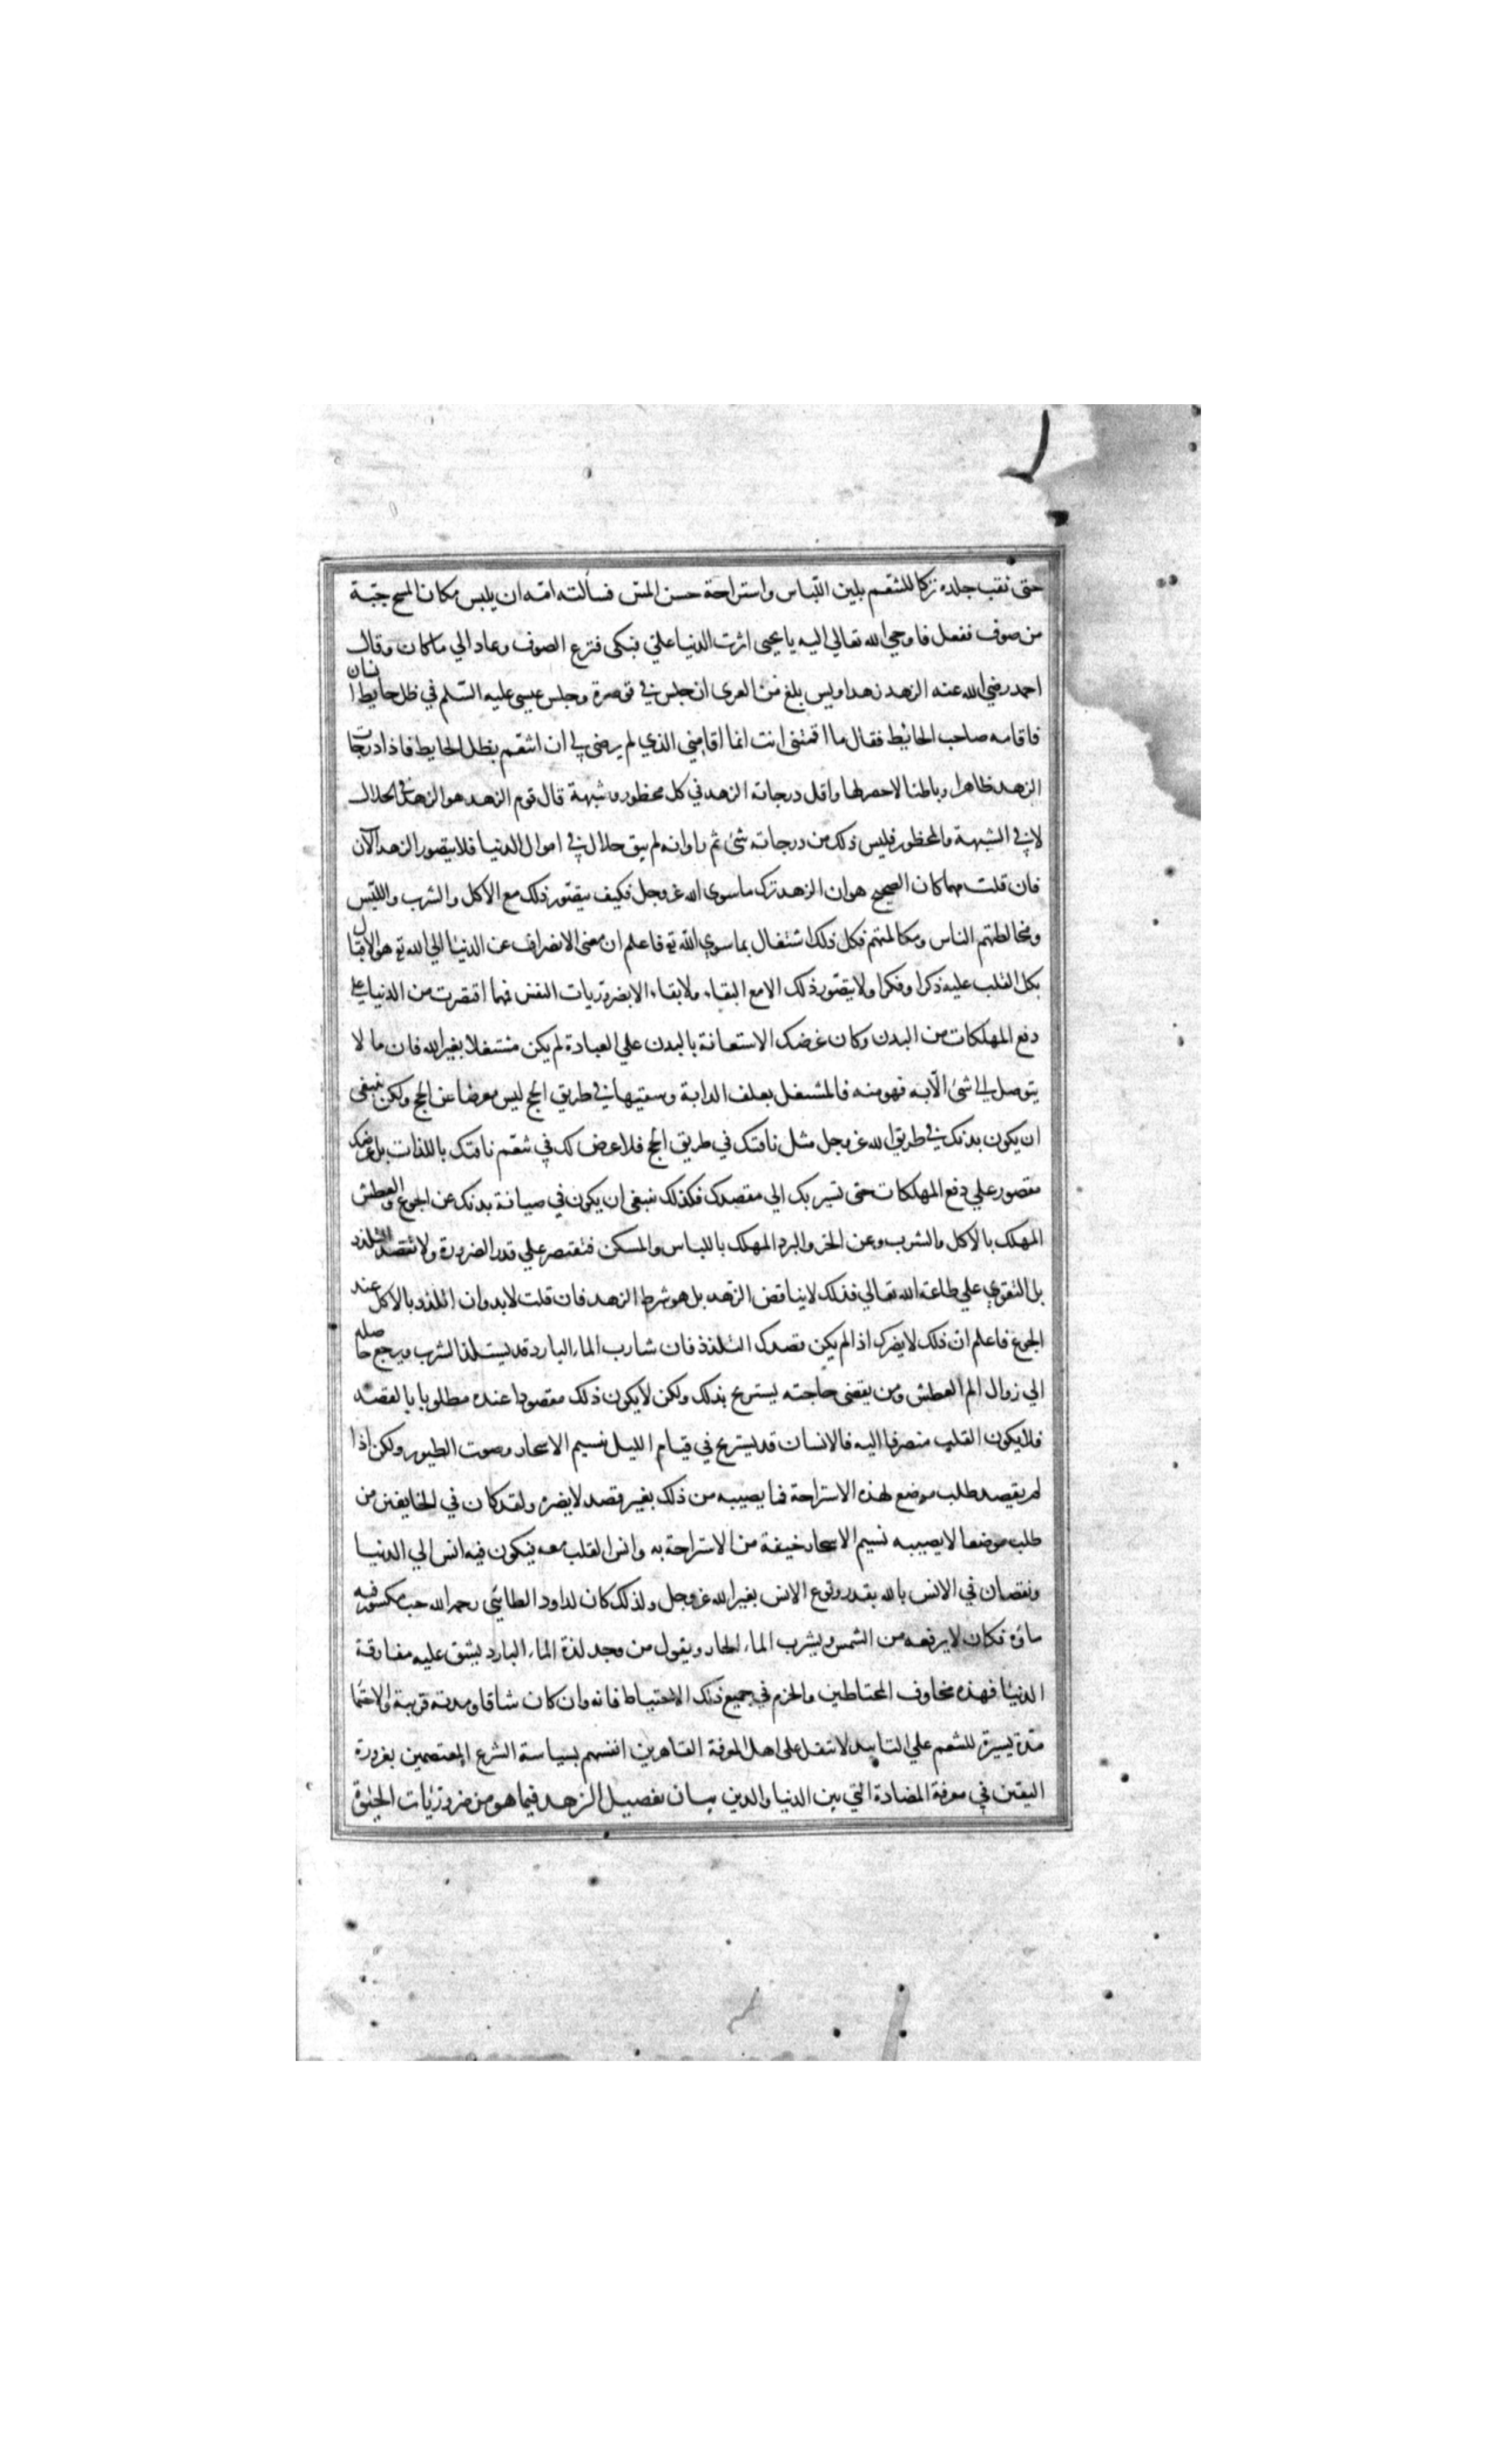 حتى نقب جلده تركا للتنعم بلين اللباس واستراحة حسن المس فسألته امه ان يلبس مكان المسح جبة
من صوف ففعل فاوحي الله تعالي اليه يا يحيى اثرت الدنيا علي فبكى فنزع الصوف وعاد الي ما كان وقال
احمد رضي الله عنه الزهد زهد اويس بلغ من العرى ان جلس في قوصرة وجلس عيسى عليه السلم في ظل حايط انسان
فاقامه صاحب الحائيط فقال ما اقمتني انت انما اقامني الذي لم يرضى لي ان اتنعم بظل الحايط فاذا درجات
الزهد ظاهرا وباطنا لا حصر لها واقل درجاته الزهد في كل محظور وشبهة قال قوم الزهد هو الزهد في الحلال
لا في الشبهة والمحظور فليس ذلك من درجاته شئ ثم راوا انه لم يبق حلال في اموال الدنيا فلا يتصور الزهد الآن
فان قلت مهما كان الصحيح هو ان الزهد ترك ما سوى الله عز وجل فكيف يتصور ذلك مع الاكل والشرب واللبس
ومخالطتهم الناس ومكالمتهم فكل ذلك اشتغال بما سوي الله تع فاعلم ان معنى الانصراف عن الدنيا الي الله تع هو الاقبال
بكل القلب عليه ذكرا وفكرا ولا يتصور ذلك الا مع البقاء ولا بقاء الا بضروريات النفس فمهما اقتصرت من الدنيا علي
دفع المهلكات من البدن وكان غرضك الاستعانة بالبدن علي العبادة لم يكن مشتغلا بغير الله فان ما لا
يتوصل الي شئ الا به فهو منه فالمشتغل بعلف الدابة وسقيها في طريق الحج ليس معرضا عن الحج ولكن ينبغى
ان يكون بدنك في طريق الله عز وجل مثل ناقتك في طريق الحج فلا غرض لك في تنعم ناقتك باللذات بل غرضك
مقصور علي دفع المهلكات حتى تسير بك الي مقصدك فكذلك ينبغى ان يكون في صيانة بدنك عن الجوع والعطش
المهلك بالاكل والشرب وعن الحر والبرد المهلك باللباس والمسكن فتقتصر علي قدر الضرورة ولا تقصد التلذذ
بل التقوي علي طاعة الله تعالي فذلك لا يناقض الزهد بل هو شرط الزهد فان قلت لا بد وان اتلذذ بالاكل عند
الجوع فاعلم ان ذلك لا يضرك اذا لم يكن قصدك التلذذ فان شارب الماء البارد قد يستلذ الشرب ويرجع حاصله
الي زوال الم العطش ومن يقضى حاجته يستريح بذلك ولكن لا يكون ذلك مقصودا عنده مطلوبا بالقصد
فلا يكون القلب منصرفا اليه فالانسان قد يستريح في قيام الليل نسيم الاسحار وصوت الطيور ولكن اذا
لم يقصد طلب موضع لهذه الاستراحة فما يصيبه من ذلك بغير قصد لا يضره ولقد كان في الخايفين من
طلب موضعا لا يصيبه نسيم الاسحار خيفة من الاستراحة به وانس القلب معه فيكون فيه انس الي الدنيا
ونقصان في الانس بالله بقدر وقوع الانس بغير الله عز وجل ولذلك كان لداود الطائي رحمه الله حب مكسور فيه
ماؤه فكان لا يرفعه من الشمس ويشرب الماء الحار ويقول من وجد لذة الماء البارد يشق عليه مفارقة
الدنيا فهذه مخاوف المحتاطين والحزم في جميع ذلك الاحتياط فانه وان كان شاقا ومدته قريبة والاحتما
مدة يسيرة للتنعم علي التابيد لا تثقل على اهل المعرفة القاهرين انفسهم بسياسة الشرع المعتصمين بعروة
اليقين في معرفة المضادة التي بين الدنيا والدين بيان تفصيل الزهد فيما هو من ضروريات الحيوة